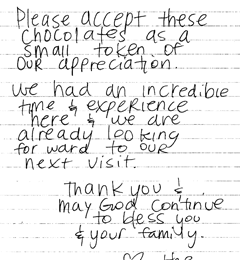 Please accept these
chocolates as a
small token of
our appreciation.
We had an incredible
time & experience
here & we are
already looking
for ward to our
next visit.
Thank you &
may God continue
to bless you
& your family.
♡ the